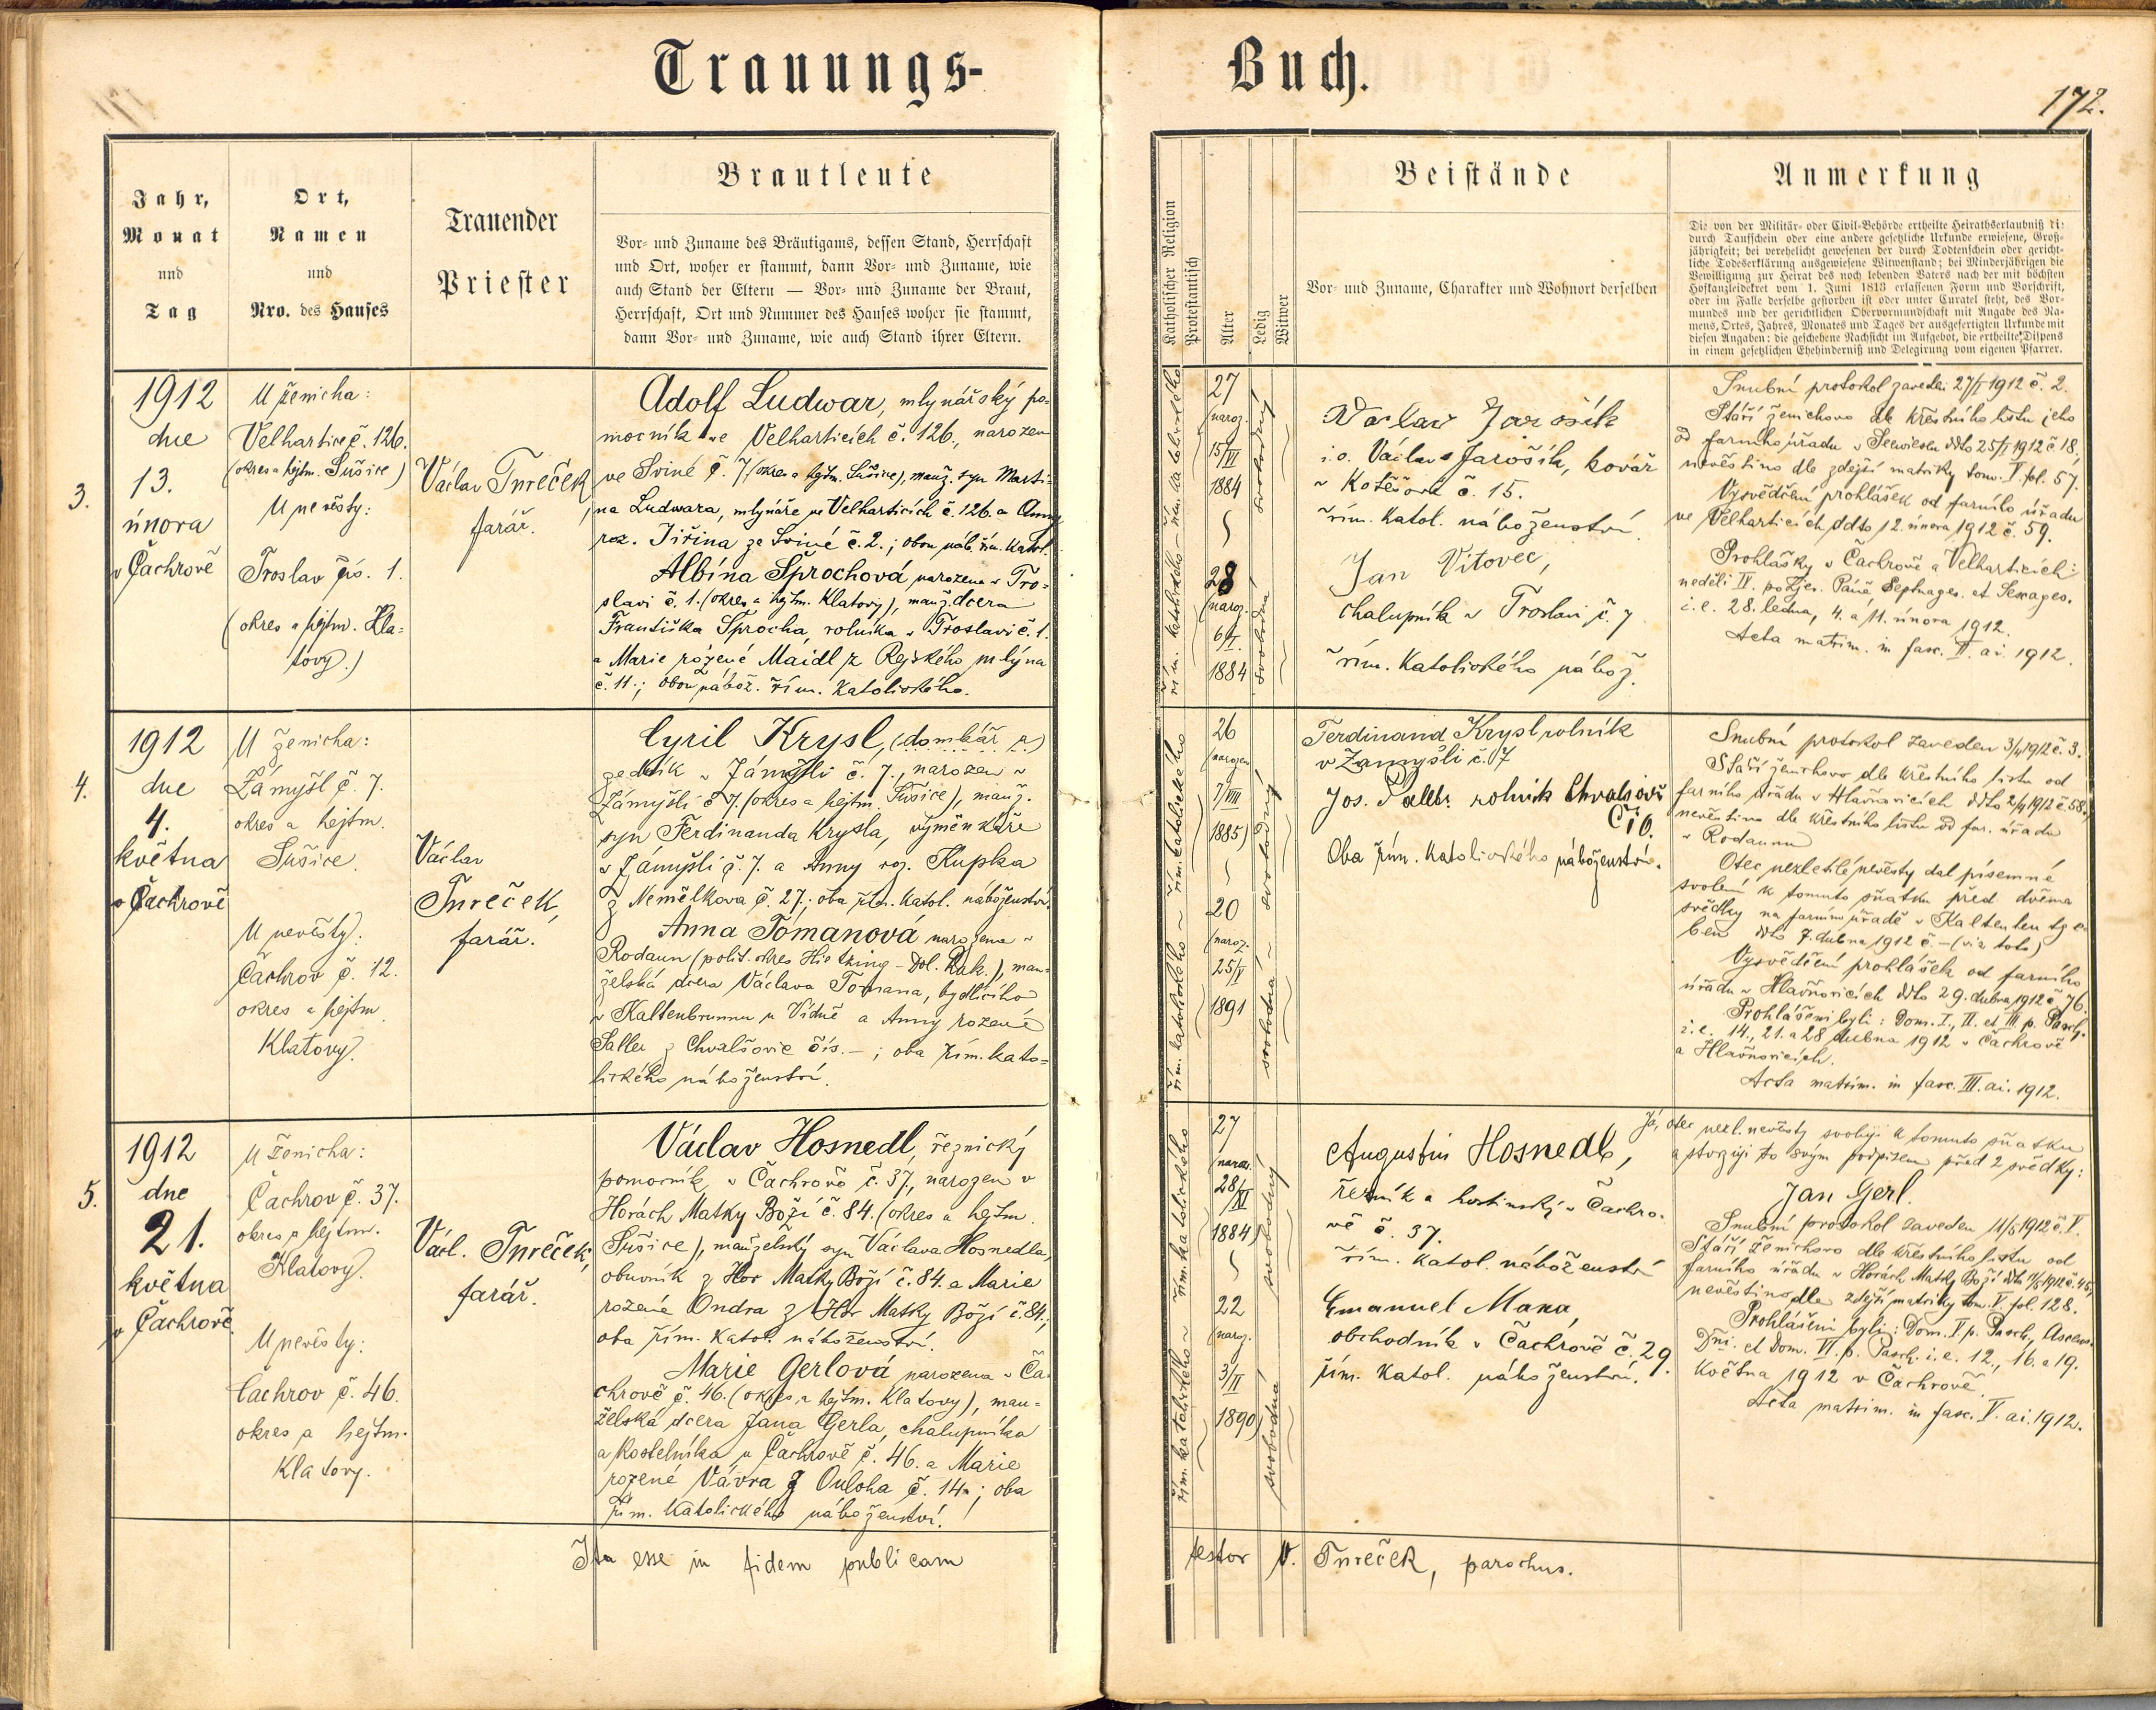 Trauungs-
Buch.
172.
Jahr,
Monat
und
Tag
Ort,
Namen
und
Nro. des Hauses
Trauender
Priester
Brautleute
Vor- und Zuname des Bräutigams, dessen Stand, Herrschaft
und Ort, woher er stammt, dann Vor- und Zuname, wie
auch Stand der Eltern — Vor- und Zuname der Braut,
Herrschaft, Ort und Nummer des Hauses woher sie stammt,
dann Vor- und Zuname, wie auch Stand ihrer Eltern.
Katholischer Religion
Protestantisch
Alter
Ledig
Witwer
Beistände
Vor- und Zuname, Charakter und Wohnort derselben
Anmerkung
Die von der Militär- oder Civil-Behörde ertheilte Heirathserlaubniß di:
durch Taufschein oder eine andere gesetzliche Urkunde erwiesene, Groß-
jährigkeit; bei verehelicht gewesenen der durch Todtenschein oder gericht-
liche Todeserklärung ausgewiesene Witwenstand; bei Minderjährigen die
Bewilligung zur Heirat des noch lebenden Vaters nach der mit höchsten
Hofkanzleidekret vom 1. Juni 1813 erlassenen Form und Vorschrift,
oder im Falle derselbe gestorben ist oder unter Curatel steht, des Vor-
mundes und der gerichtlichen Obervormundschaft mit Angabe des Na-
mens, Ortes, Jahres, Monates und Tages der ausgefertigten Urkunde mit
diesen Angaben: die geschehene Nachsicht im Aufgebot, die ertheilte Dispens
in einem gesetzlichen Ehehinderniß und Delegirung vom eigenen Pfarrer.
3.
1912
dne
13.
února
v Čachrově
U ženicha:
Velhartice č. 126.
(okres a hejtm. Sušice)
U nevěsty:
Troslav čís. 1.
(okres a hejtm. Kla=
tovy.)
Václav Tureček,
farář.
Adolf Ludwar, mlynářský po=
mocník ve Velharticích č. 126., narozen
ve Sviné č. 7, (okres a hejtm. Sušice), manž. syn Marti-
na Ludwara, mlynáře ve Velharticích č. 126. a Anny
roz. Jiřina ze Sviné č. 2.; obou náb. řím. katol.
Albína Sprochová, narozena v Tro-
slavi č. 1. (okres a hejtm. Klatovy), manž. dcera
Františka Sprocha, rolníka v Troslavi č. 1.
a Marie rozené Maidl z Rejského mlýna
č. 11.; obou nábož. řím. katolického.
řím. katolického – řím. katolického
27
(naroz.
15/II
1884
28
(naroz.
6/I.
1884
svobodný
svobodná
Václav Jarošík
i. o. Václav Jarošík, kovář
v Kotěšově č. 15.
řím. katol. náboženství.
Jan Vítovec,
chalupník v Troslavi č. 7
řím. katolického nábož.
Snubní protokol zaveden 27/I 1912 č. 2.
Stáří ženichovo dle křestního listu jeho
od farního úřadu v ddto 25/I 1912 č. 18,
nevěstino dle zdejší matriky tom. V. fol. 57.
Vysvědčení prohlášek od farního úřadu
ve Velharticích ddto 12. února 1912 č. 59.
Prohlášky v Čachrově a Velharticích:
neděli IV. po Zjev. Páně Septuages. et Sexages.
i. e. 28. ledna, 4. a 11. února 1912.
Acta matrim. in fasc. II. ai. 1912.
4.
1912
dne
4.
května
v Čachrově
U ženicha:
Zámyšl č. 7.
okres a hejtm.
Sušice.
U nevěsty:
Čachrov č. 12.
okres a hejtm.
Klatovy.
Václav
Tureček,
farář.
Cyril Krysl, (domkář a)
zedník v Zámyšli č. 7., narozen v
Zámyšli č. 7. (okres a hejtm. Sušice), manž.
syn Ferdinanda Krysla, výměnkáře
v Zámyšli č. 7. a Anny roz. Kupka
z Nemělkova č. 27.; oba řím. katol. náboženství.
Anna Tomanová narozena v
Rodaun (polit. okres Hietzing – Dol. Rak.), man=
želská dcera Václava Tomana, bydlícího
v Kaltenbrunnu u Vídně a Anny rozené
Saller z Chvalšovic čís. – ; oba řím. kato-
lického náboženství.
řím. katolického ~ řím. katolického
26
(narozen
7/VIII
1885)
20
(naroz.
25/V
1891
svobodný
svobodná
Ferdinand Krysl rolník
v Zamyšli č. 7
Jos. rolník
Čí 6.
Oba řím. katolického náboženství.
Snubní protokol zaveden 3/4 1912 č. 3.
Stáří ženichovo dle křestního listu od
farního úřadu v Hlavňovicích ddto 2/4 1912 č. 58,
nevěstino dle křestního listu od far. úřadu
v Rodaunu
Otec nezletilé nevěsty dal písemné
svolení k tomuto sňatku před dvěma
svědky na farním úřadě v Kaltenleutge-
ben ddto 7. dubna 1912 č. – (via toto)
Vysvědčení prohlášek od farního
úřadu v Hlavňovicích ddto 29. dubna 1912 č. 76.
Prohlášeni byli: Dom. I., II. et III p. Pasch.
i. e. 14., 21. a 28 dubna 1912 v Čachrově
a Hlavňovicích.
Acta matrim. in fasc. III. ai. 1912.
5.
1912
dne
21.
května
v Čachrově.
U ženicha:
Čachrov č. 37.
okres a hejtm.
Klatovy.
U nevěsty:
Čachrov č. 46.
okres a hejtm.
Klatovy.
Václ. Tureček,
farář.
Václav Hosnedl, řeznický
pomocník, v Čachrově č. 37., narozen v
Horách Matky Boží č. 84. (okres a hejtm.
Sušice), manželský syn Václava Hosnedla,
obuvník z Hor Matky Boží č. 84. a Marie
rozené Ondra z Hor Matky Boží č. 84.;
oba řím. katol. náboženství.
Marie Gerlová narozena v Ča-
chrově č. 46. (okres a hejtm. Klatovy), man-
želská dcera Jana Gerla, chalupníka
a kostelníka v Čachrově č. 46. a Marie
rozené Vávra z Ouloha č. 14.; oba
řím. katolického náboženství.
řím. katolického ~ řím. katolického
27
(naroz.
28/XI
1884)
22
(naroz.
3/II
1890)
svobodný
svobodná
Augustin Hosnedl,
řezník a hostinský v Čachro-
vě č. 37.
řím. katol. náboženství
Emanuel Mana,
obchodník v Čachrově č. 29.
řím. katol. náboženství.
Já, otec nezl. nevěsty svoluji k tomuto sňatku
a stvrzuji to svým podpisem před 2 svědky:
Jan Gerl.
Snubní protokol zaveden 11/5 1912 č. V.
Stáří ženichovo dle křestního listu od
farního úřadu v Horách Matky Boží ddto 1912 č. 45,
nevěstino dle zdejší matriky tom. V. fol. 128.
Prohlášeni byli: Dom. V. p. Pasch., Ascens.
Dni. et Dom. VI. p. Pasch. i. e. 12., 16. a 19.
května 1912 v Čachrově.
Acta matrim. in fasc. V. ai. 1912.
Ita esse in fidem publicam
testor V. Tureček, parochus.